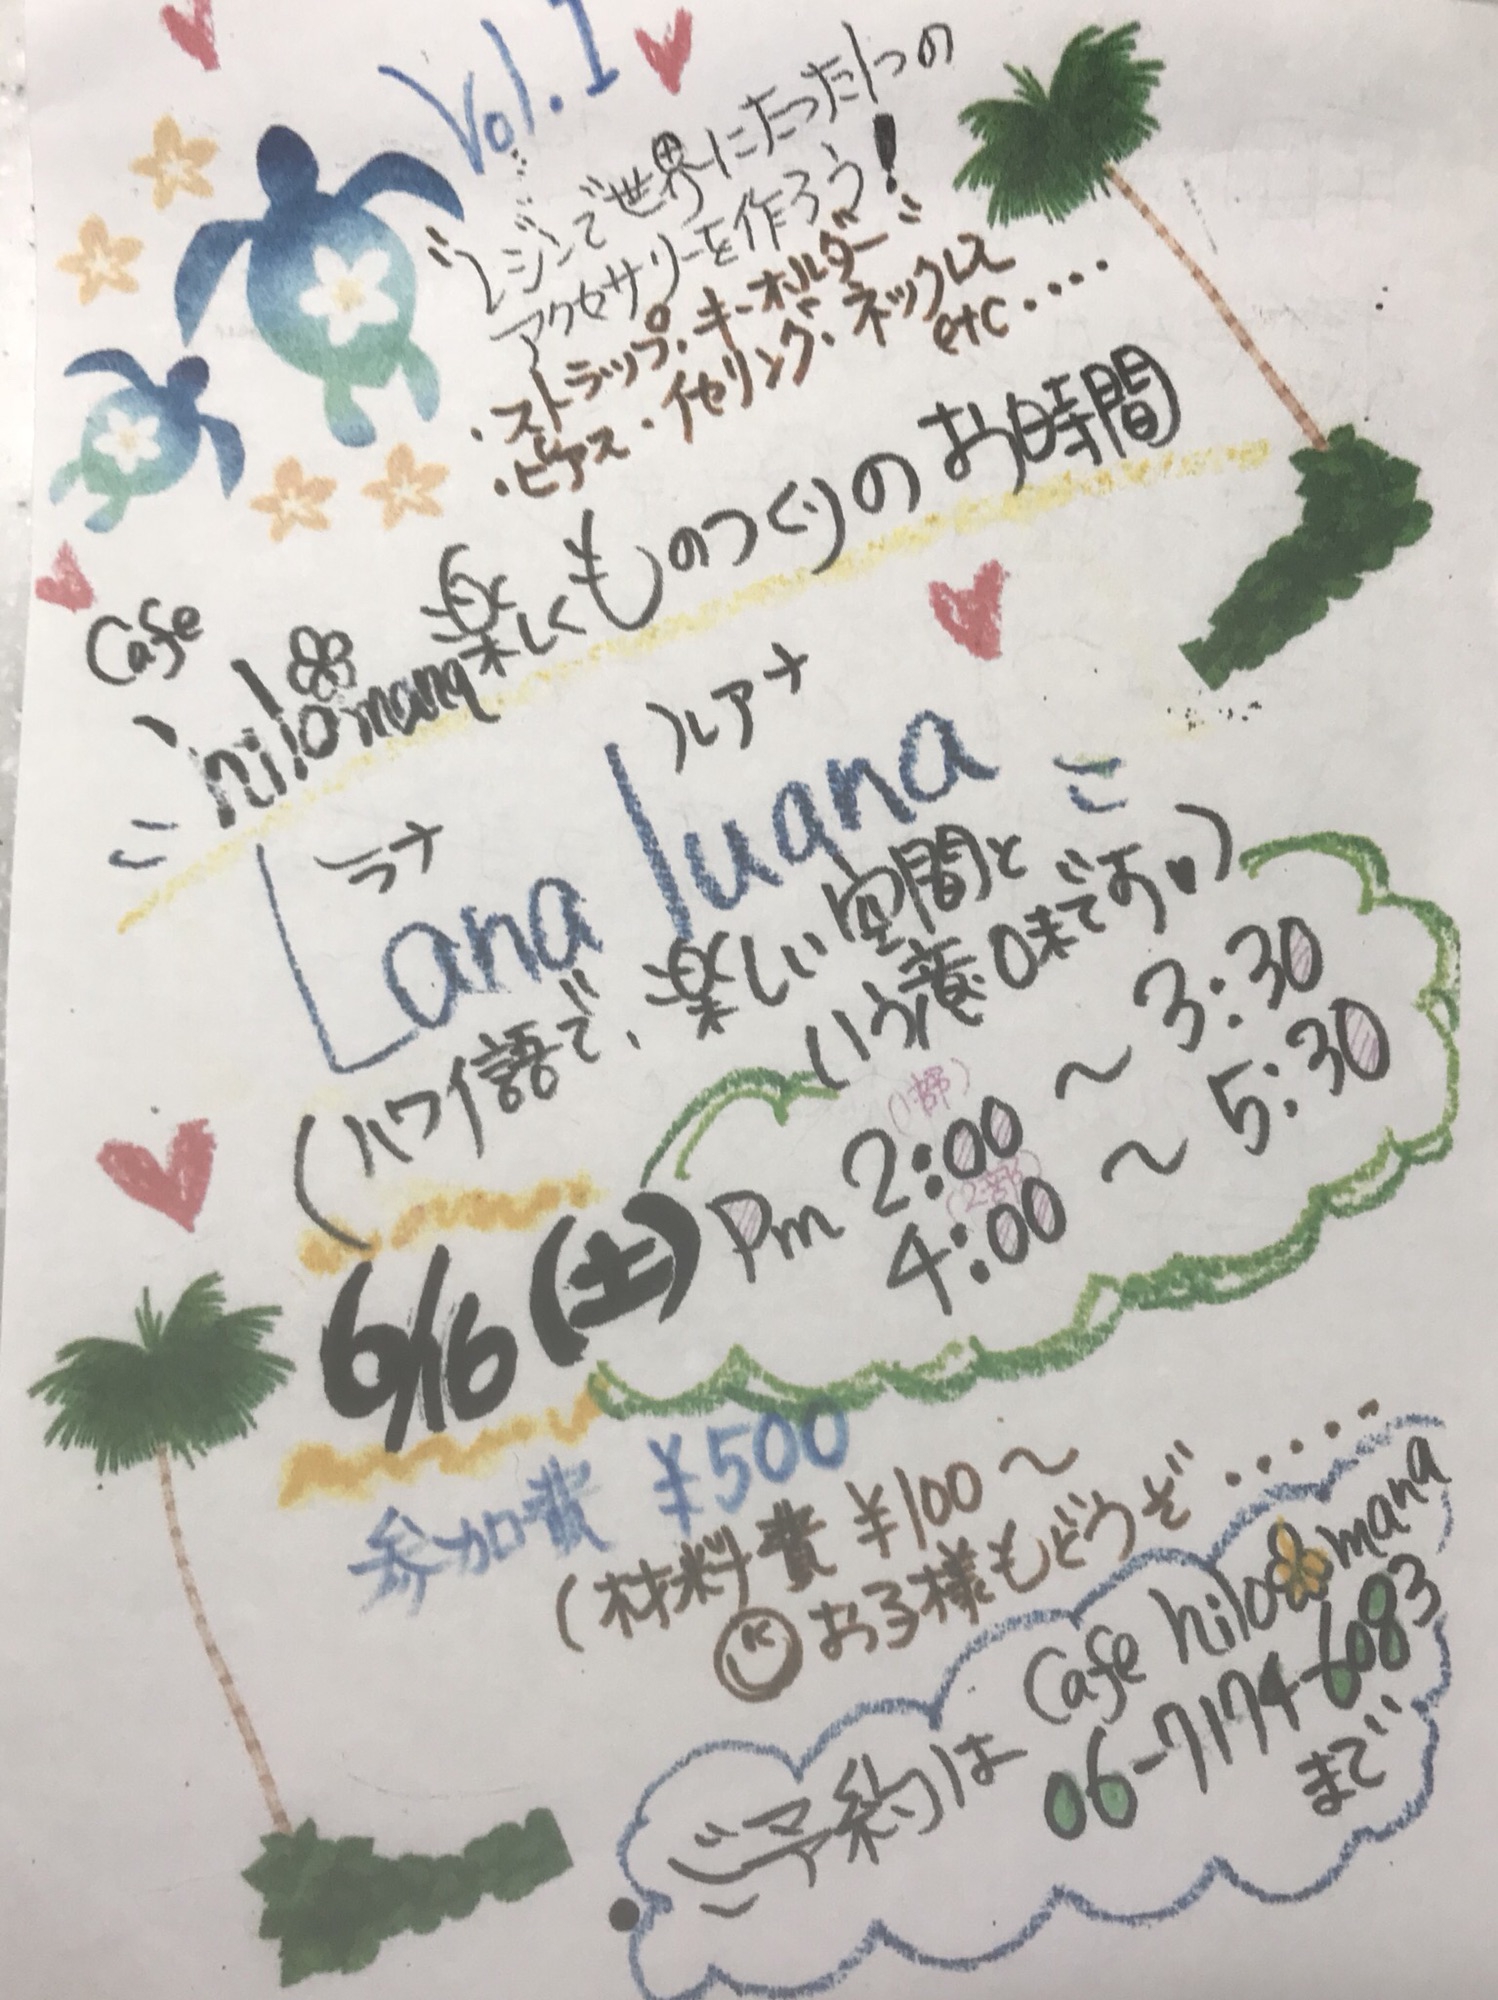 Vol.1
"レジンで世界にたった1つの
アクセサリーを作ろう!"
・ストラップ・キーホルダー
・ピアス・イヤリング・ネックレス
etc・・・・
Cafe
hilo mana 楽しくものつくりのお時間
ラナ ルアナ
Lana luana
(ハワイ語で、楽しい空間と
いう意味です♥)
6/16(土) Pm 2:00 ~ 3:30
(1部)
4:00 ~ 5:30
(2部)
参加費 ¥500
(材料費 ¥100~
お子様もどうぞ・・・・・
ご予約は Cafe hilo mana
06-7174-6083
まで